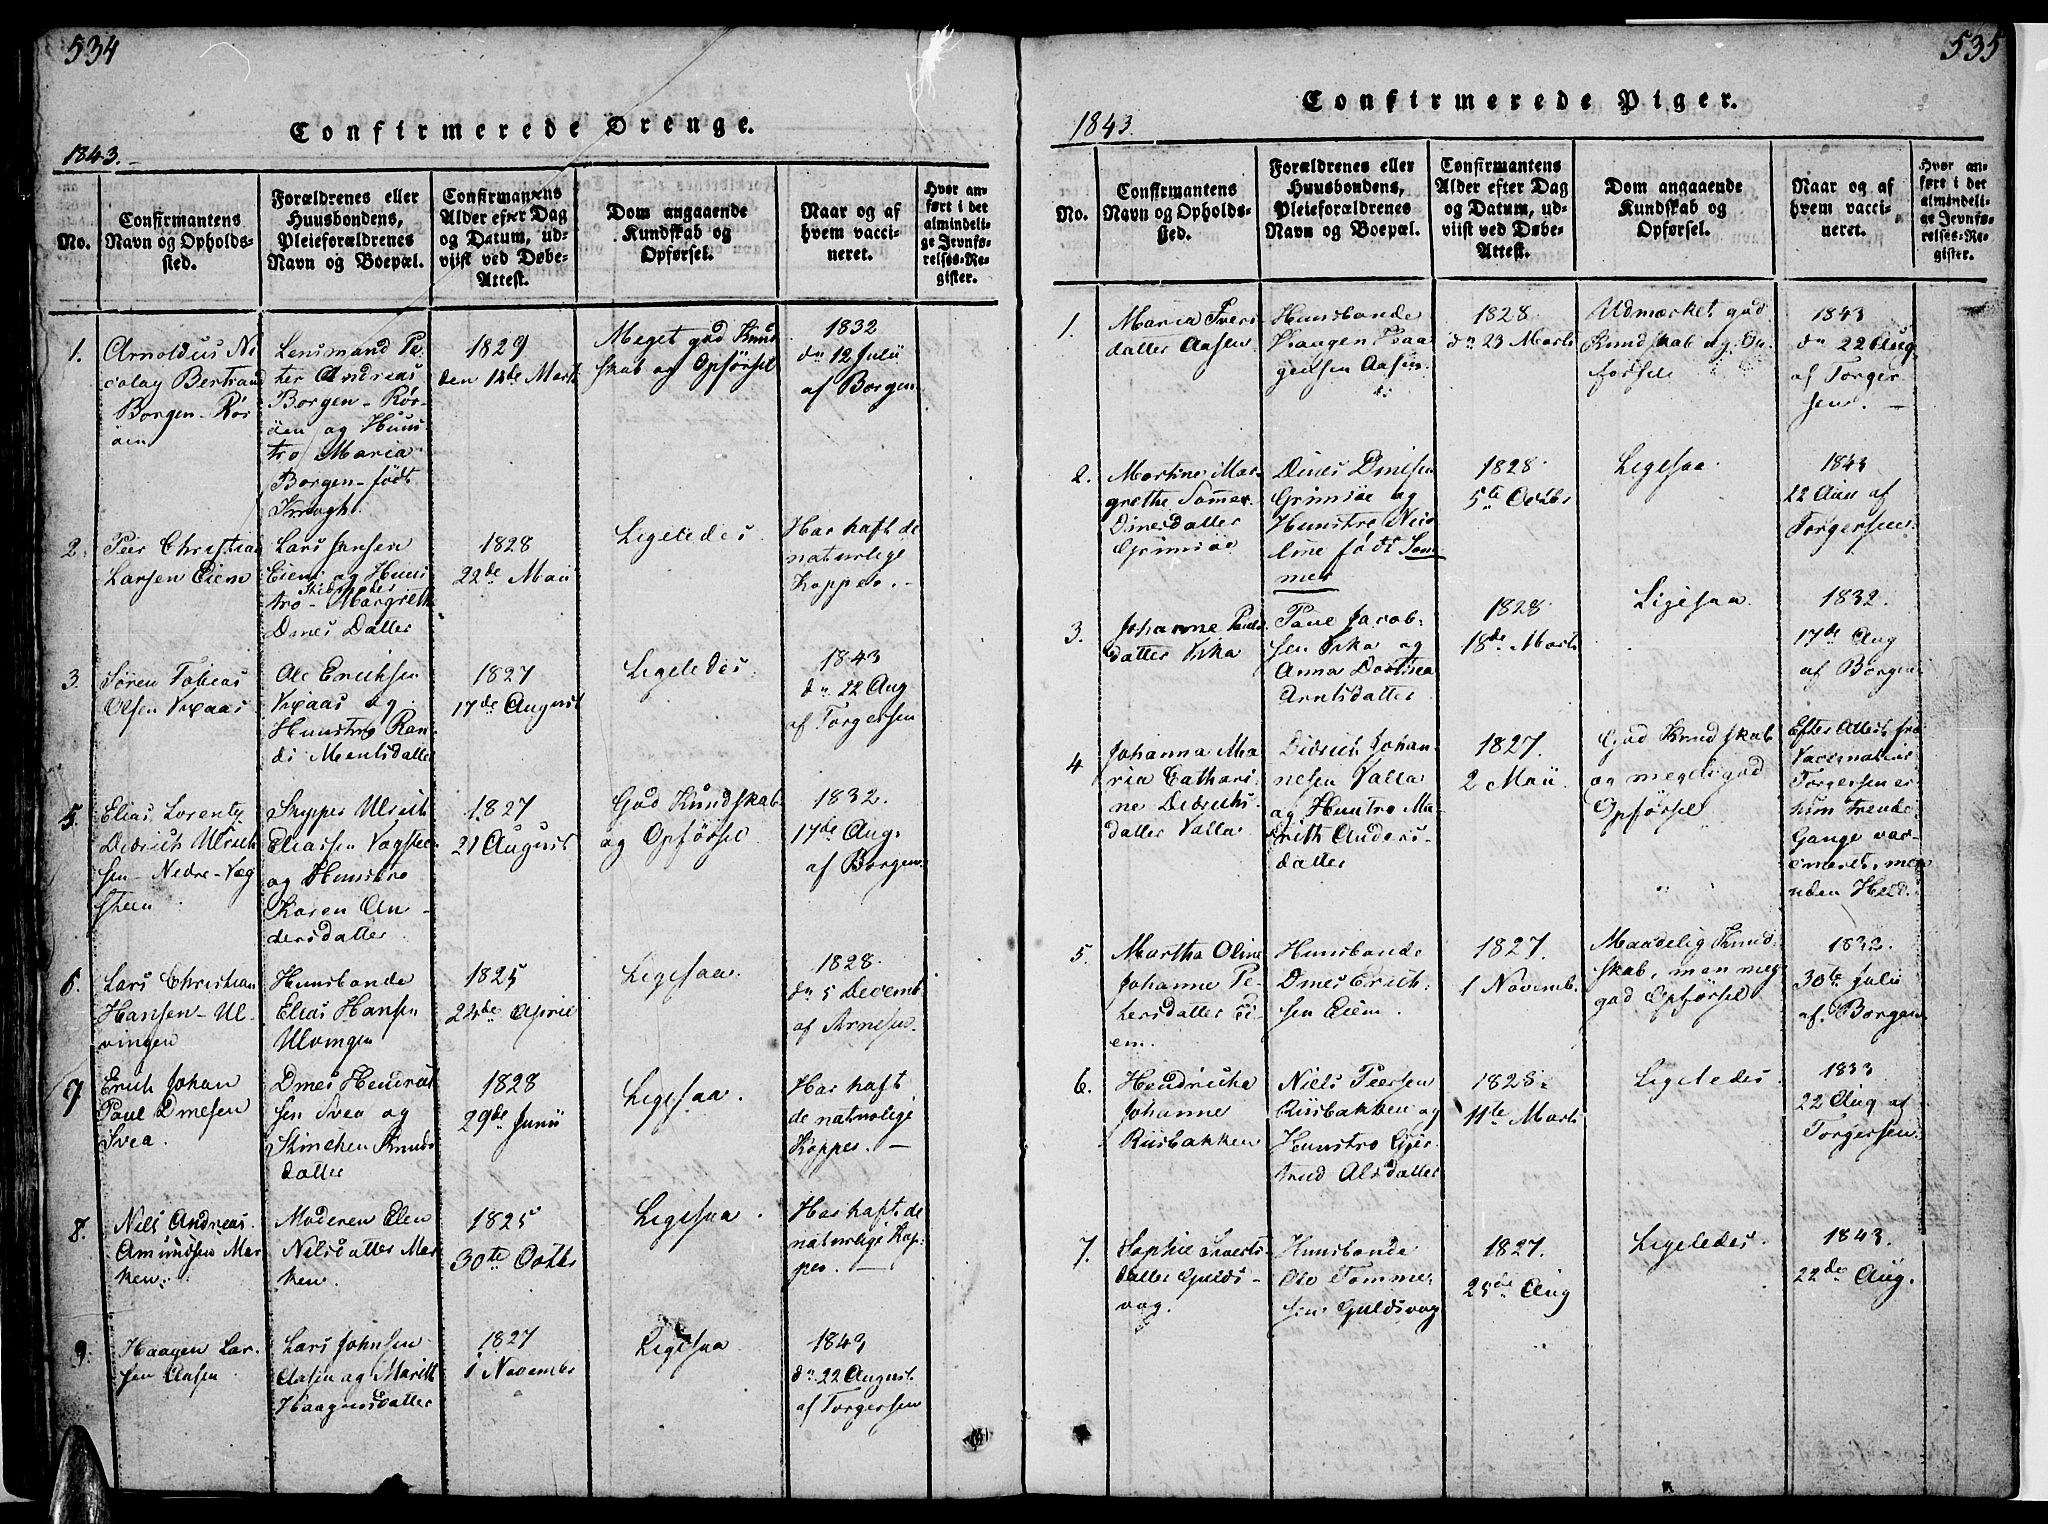 534
Confirmerede Drenge.
1843.
No.
Confirmantens
Navn og Opholds-
sted.
Forældrenes eller
Huusbondens,
Pleieforældrenes
Navn og Boepæl.
Confirmantens
Alder efter Dag
og Datum, ud-
viist ved Døbe-
Attest.
Dom angaaende
Kundskab og
Opførsel.
Naar og af
hvem vacci-
neret.
Hvor an-
ført i det
almindeli-
ge Jevnfø-
relses-Re-
gister.
1.
Arnoldus Ni
colay Bertrand
Borgen - Rør
öen
Lensmand Pe-
ter Andreas
Borgen - Rør-
öen og Huus
tro Maria
Borgen - født
Krogh.
1829
den 14de Marts
Meget god Kund
skab og Opførsel
1832
dn 12 Julii
af Borgen
2.
Peer Christian
Larsen Eiem
Lars Jansen
Eiem og Huus
tro - Margrethe
Dines Datter
1828
22de Maii
Ligeledes
Har haft de
naturlige
Kopper. -
3.
Søren Tobias
Olsen Vixaas
Ole Erichsen
Vixaas og
Huustro Ran-
di Mentsdatter
1827
17de August
Ligeledes
1843
dn 22 Aug
af Torgersen
5.
Elias Lorentz
Didrich Ulrich
sen - Nedre - Væg
steen
Skipper Ulrich
Eliassen Vægsteen
og Huustro
Karen An-
dersdatter
1827
21 August
God Kundskab
og Opførsel
1832.
17de Aug.
af Borgen
6.
Lars Christian
Hansen - Ul-
vingen
Huusbonde
Elias Hansen
Ulvingen
1825
24de April
Ligesaa.
1828.
dn 5 Decemb
af Arnesen.
7
Erich Johan
Paul Dinesen
Svea.
Dines Hendrich
sen Svea og
Stinchen Knuds
datter
1828
29de Junii
Ligesaa.
Har haft
de naturlige
Kopper. -
8.
Niels Andreas
Amundsen Mar-
ken.
Moderen Elen
Nielsdatter Mar-
ken.
1825
30te Octbr
Ligesaa.
Har haft de
naturlige Kop-
per. -
9.
Haagen Lar-
sen Aasen
Lars Johnsen
Aasen og Marith
Haagensdatter
1827
1 Novembr
Ligesaa
1843
dn 22 August
af Torgersen
535
Confirmerede Piger.
1843.
No.
Confirmantens
Navn og Opholds-
sted.
Forældrenes eller
Huusbondens,
Pleieforældrenes
Navn og Boepæl.
Confirmantens
Alder efter Dag
og Datum, ud-
viist ved Døbe-
Attest.
Dom angaaende
Kundskab og
Opførsel.
Naar og af
hvem vacci-
neret.
Hvor an-
ført i det
almindeli-
ge Jevnfø-
relses-Re-
gister.
1.
Maria Ivers
datter Aasen
Huusbonde
Haagen Isaa
gensen Aasen
1828
dn 23 Marts
Udmærket god
Kundskab og Op-
førsel
1843
dn 22 Aug
af Torger
sen. -
2.
Martine Mar-
grethe Sommer
Dinesdatter
Grimsöe
Dines Dinesen
Grimsöe og
Huustro Nico
line født Som
mer
1828
5te Octbr
Ligesaa
1843
22 Aug af
Torgersen
3.
Johanne Pauls
datter Vika
Paul Jacob-
sen Vika og
Anna Dorthea
Arntsdatter
1828
18de Marts
Ligesaa
1832.
17de Aug
af Borgen
4
Johanna Ma
ria Cathari
ne Didrichs
datter Valla
Didrich Johan
nesen Valla
og Huustro Ma
rith Anders-
datter
1827.
2 Maii
God Kundskab
og meget god
Opførsel
Efter Attest fra
Vaccinateur
Torgersen er
hun trende
Gange vac-
cineret, men
uden Held.
5.
Martha Oline
Johanne Pe-
tersdatter Ei-
em.
Huusbonde
Dines Erich-
sen Eiem.
1827.
1 Novemb.
Maadelig Kund-
skab, men meg
god Opførsel
1832.
30te Julii
af. Borgen
6.
Hendricha
Johanne
Riisbakken
Niels Peersen
Riisbakken og
Huustro Gjer
trud Olsdatter
1828.
11te Marts
Ligeledes
1833
22 Aug af
Torgersen
7.
Sophie Siverts
datter Gulds-
vog.
Huusbonde
Ole Tomme
sen Guldsvog
1827.
25de Aug
Ligeledes.
1843.
22de Aug.